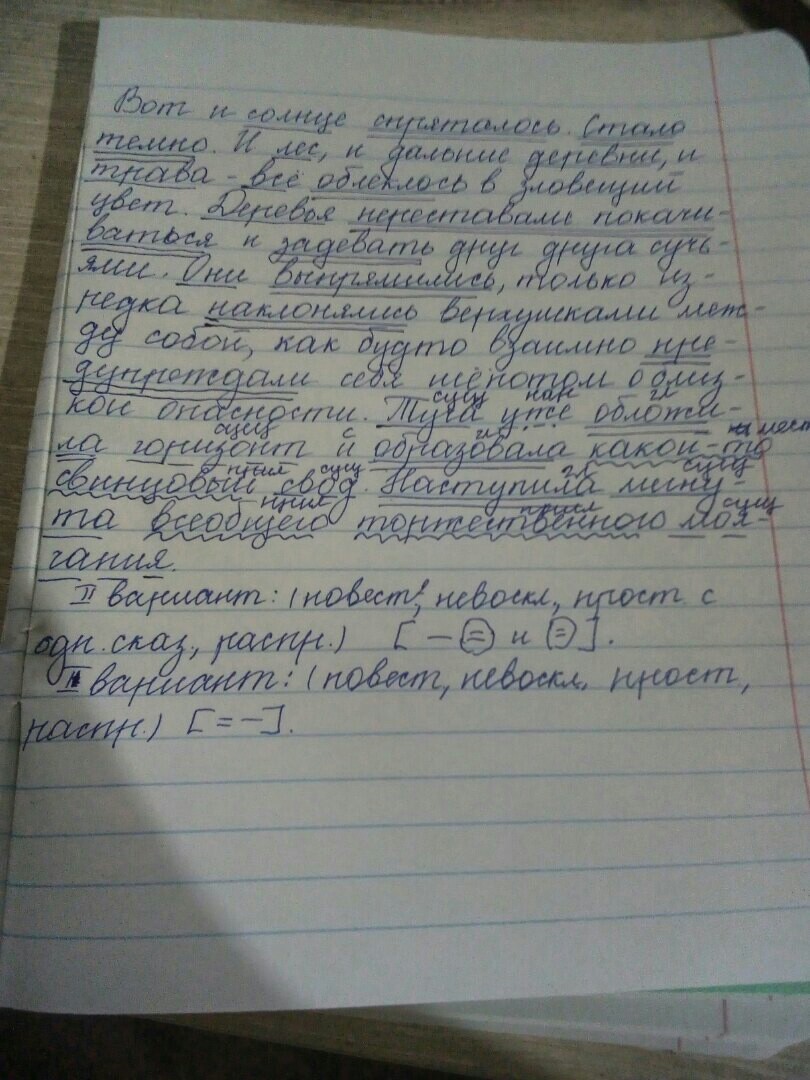 Вот и солнце спряталось. Стало
темно. И лес, и дальние деревни, и
трава - всё облеклось в зловещий
цвет. Деревья переставали покачи-
ваться и задевать друг друга сучь-
ями. Они выпрямились, только из-
редка наклонялись верхушками меж-
ду собой, как будто взаимно пре-
дупреждали себя шёпотом о близ-
сущ нар гл
кой опасности. Туча уже обложи-
сущ с гл мест
ла горизонт и образовала какой-то
прил сущ гл сущ
свинцовый свод. Наступила мину-
прил прил сущ
та всеобщего торжественного мол-
чания.
II вариант: (повест, невоскл, прост с
одн. сказ., распр.) [ – (=) и (=) ].
II вариант: (повест, невоскл. прост,
распр.) [ = – ].